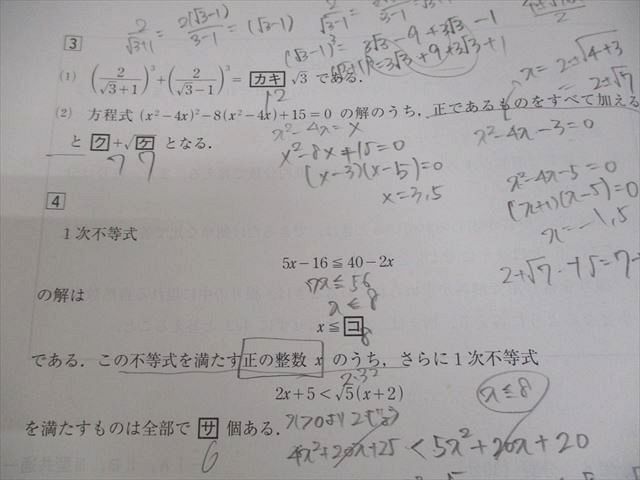 2/(√3+1) = 2(√3-1)/(3-1) = (√3-1)
3
(√3-1)³ = 3√3-9+3√3-1
=3√3+9+3√3+1
(1) (2/(√3+1))³+(2/(√3-1))³= カキ √3 である.
12
x=2±√4+3
=2±√7
(2) 方程式 (x²-4x)²-8(x²-4x)+15=0 の解のうち, 正であるものをすべて加える
と ク +√ケ となる.
7 7
x²-4x=X
x²-8x+15=0
(x-3)(x-5)=0
x=3,5
x²-4x-3=0
x²-4x-5=0
(x+1)(x-5)=0
x=-1,5
4
1次不等式
5x-16≦40-2x
7x≦56
の解は
x≦8
x≦コ
8
である. この不等式を満たす正の整数 x のうち, さらに1次不等式
2x+5<√5(x+2)
x≦8
を満たすものは全部で サ 個ある.
6
4x²+20x+25 < 5x²+20x+20